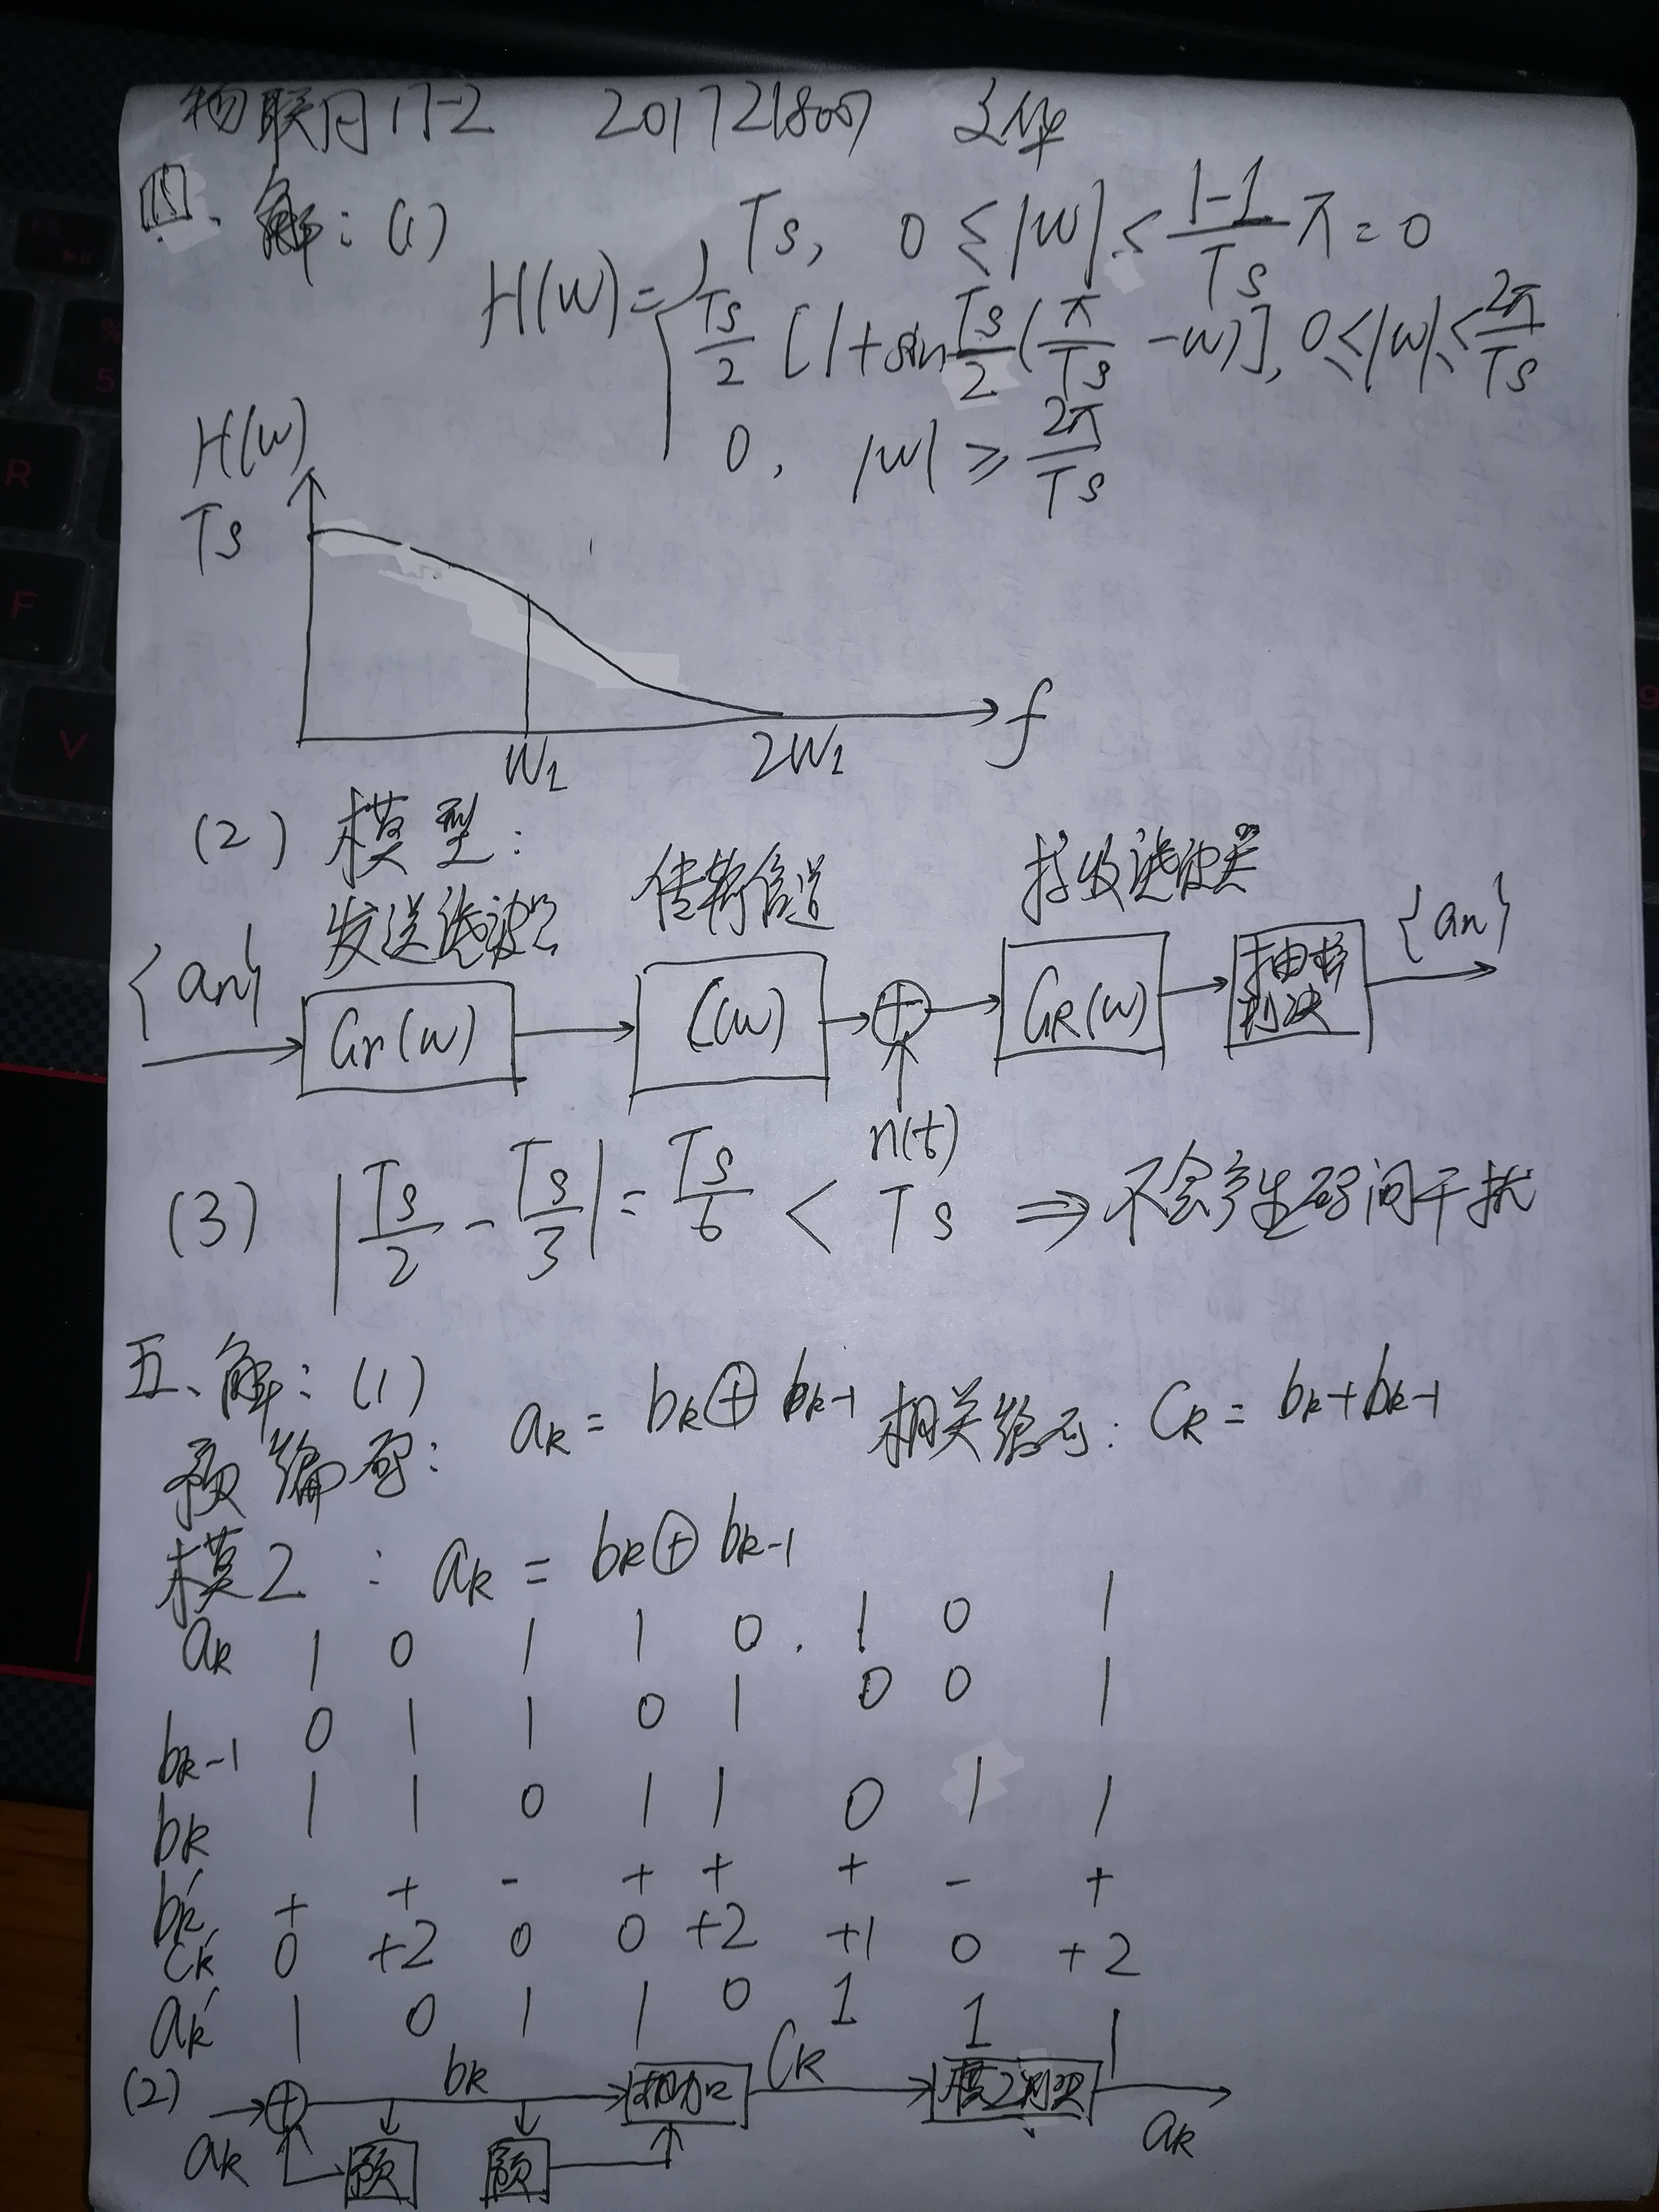 物联网17-2 2017218007
四、解:(1) Ts, 0≤|W|≤(1-1)/Ts π=0
H(W)={ Ts/2 [1+sin Ts/2 (π/Ts -W)], 0≤|W|≤2π/Ts
0, |W|≥2π/Ts
H(W)
Ts
W1 2W1 f
(2) 模型:
发送滤波器 传输信道 接收滤波器
{an} GT(W) C(W) + GR(W) 抽样判决 {an}
n(t)
(3) |Ts/2 - Ts/3| = Ts/6 < Ts ⇒ 不会产生码间干扰
五、解:(1)
预编码: aK = bK⊕bK-1 相关编码: CK = bK+bK-1
模2 : aK = bK⊕bK-1
aK 1 0 1 1 0 . 1 0 1
bK-1 0 1 1 0 1 0 0 1
bK 1 1 0 1 1 0 1 1
bK' + + - + + + - +
CK' 0 +2 0 0 +2 +1 0 +2
aK' 1 0 1 1 0 1 1 1
(2) aK ⊕ bK 相加 CK 模2判决 aK
预 预